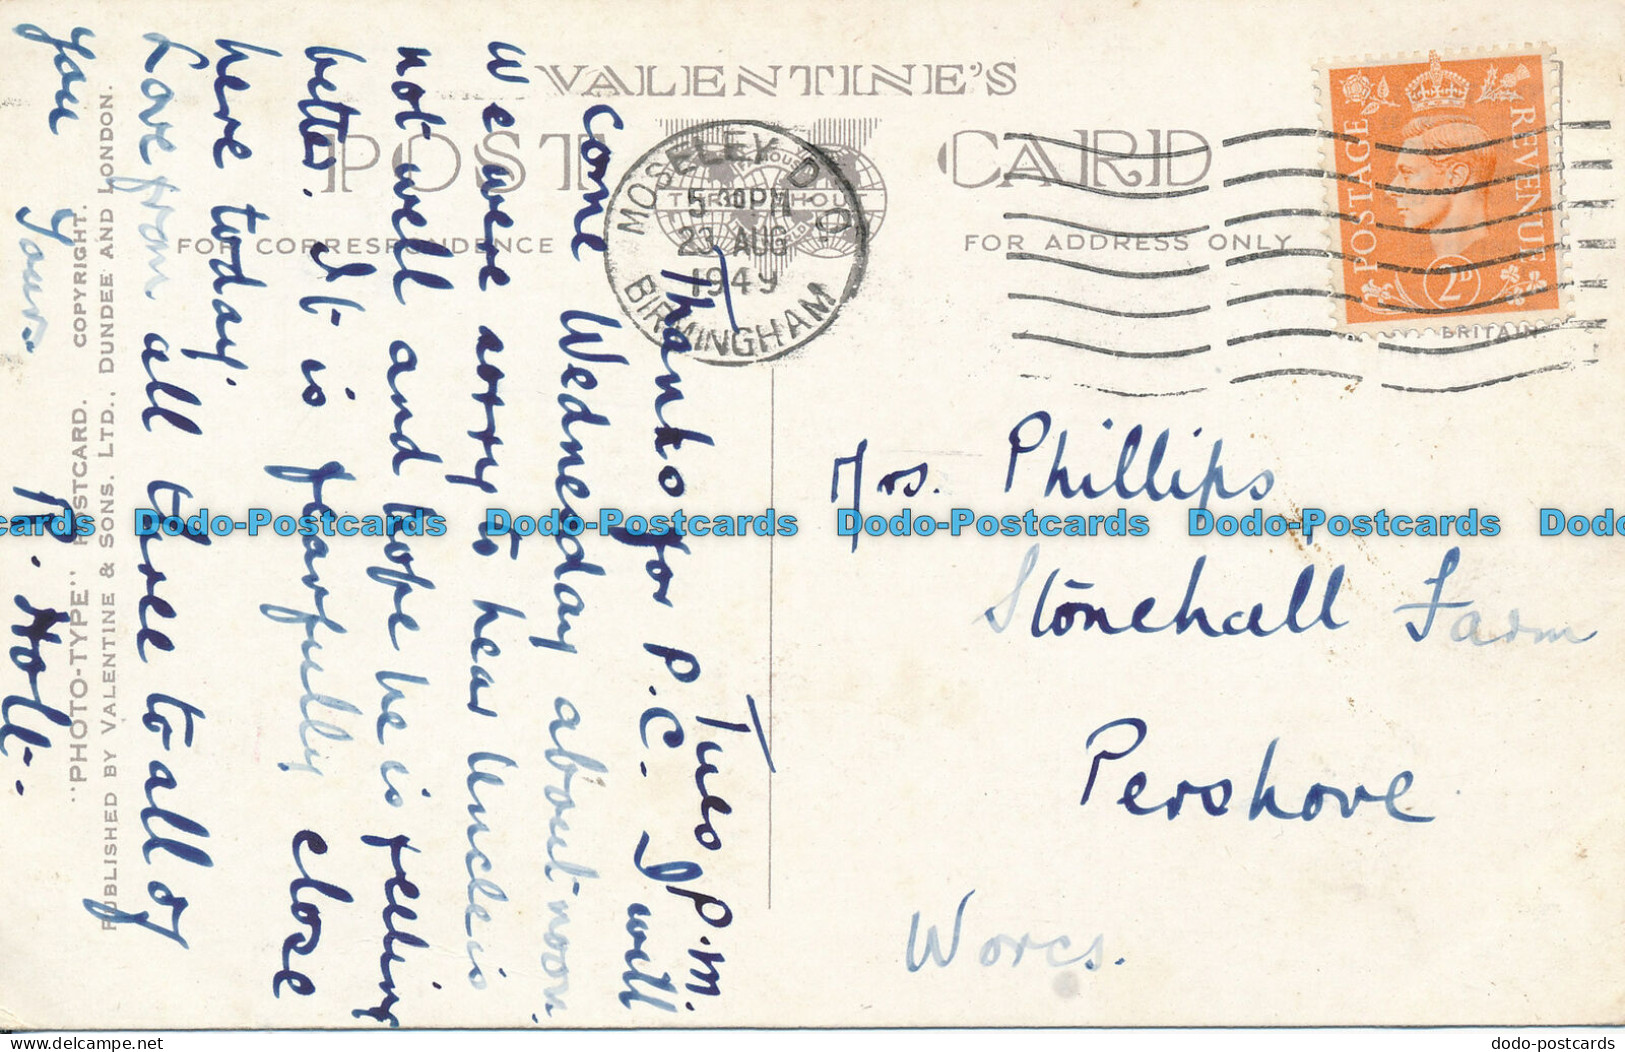 VALENTINE'S
POST CARD
FOR CORRESPONDENCE
FOR ADDRESS ONLY
MOSELEY D.O.
5 30PM
23 AUG
1949
BIRMINGHAM
POSTAGE
REVENUE
2D
BRITAIN
Tues P.M.
Thanks for P.C. I will
come Wednesday about noon.
We were sorry to hear Uncle is
not well and hope he is feeling
better. It is fearfully close
here today.
Love from all three to all of
you Yours
R. Holt.
Mrs. Phillips
Stonehall Farm
Pershore
Worcs.
"PHOTO-TYPE" POSTCARD. COPYRIGHT.
PUBLISHED BY VALENTINE & SONS. LTD., DUNDEE AND LONDON.
cards Dodo-Postcards Dodo-Postcards Dodo-Postcards Dodo-Postcards Dodo
dodo-postcards.com
dodo-postcards